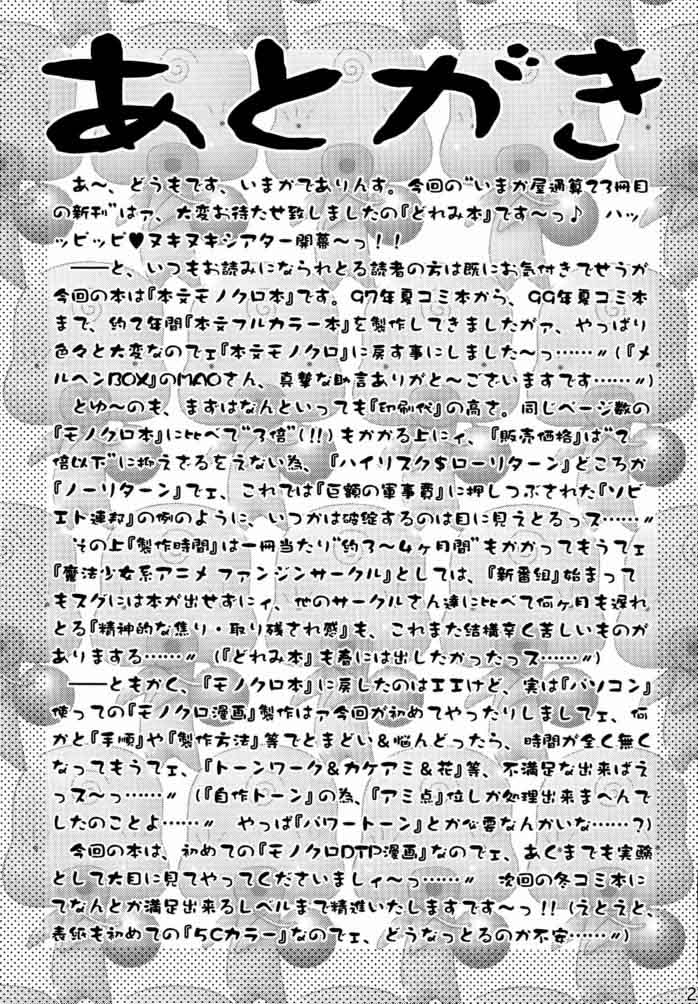 あとがき
あ～、どうもです、いまかでありんす。今回の"いまか屋通算23冊目
の新刊"はァ、大変お待たせ致しましたの『どれみ本』です～っ♪　ハッ
ッピッピ♥ヌキヌキシアター開幕～っ！！
――と、いつもお読みになられとる読者の方は既にお気付きでせうが
今回の本は『本文モノクロ本』です。97年夏コミ本から、99年夏コミ本
まで、約2年間『本文フルカラー本』を製作してきましたがァ、やっぱり
色々と大変なのでェ『本文モノクロ』に戻す事にしました～っ……〃(『メ
ルヘンBOX』のMAOさん、真摯な助言ありがと～ございますです……〃)
とゆ～のも、まずはなんといっても『印刷代』の高さ。同じページ数の
『モノクロ本』に比べて"3倍"(!!)もかかる上にィ、『販売価格』は"2
倍以下"に抑えざるをえない為、『ハイリスク$ローリターン』どころか
『ノーリターン』でェ、これでは『巨額の軍事費』に押しつぶされた『ソビ
エト連邦』の例のように、いつかは破綻するのは目に見えとるっス……〃
その上『製作時間』は一冊当たり"約3～4ヶ月間"もかかってもうてェ
『魔法少女系アニメ ファンジンサークル』としては、『新番組』始まって
もスグには本が出せずにィ、他のサークルさん達に比べて何ヶ月も遅れ
とる『精神的な焦り・取り残され感』も、これまた結構辛く苦しいものが
ありまする……〃　(『どれみ本』も春には出したかったっス……〃)
――ともかく、『モノクロ本』に戻したのはエエけど、実は『パソコン』
使っての『モノクロ漫画』製作はァ今回が初めてやったりしましてェ、何
かと『手順』や『製作方法』等でとまどい&悩んどったら、時間が全く無く
なってもうてェ、『トーンワーク&カケアミ&花』等、不満足な出来ばえ
っス～っ……〃　(『自作トーン』の為、『アミ点』位しか処理出来まへんで
したのことよ……〃　やっぱ『パワートーン』とか必要なんかいな……?)
今回の本は、初めての『モノクロDTP漫画』なのでェ、あくまでも実験
として大目に見てやってくださいましィ～っ……〃　次回の冬コミ本に
てなんとか満足出来るレベルまで精進いたしますです～っ！！(えとえと、
表紙も初めての『5Cカラー』なのでェ、どうなっとるのか不安……〃)
2